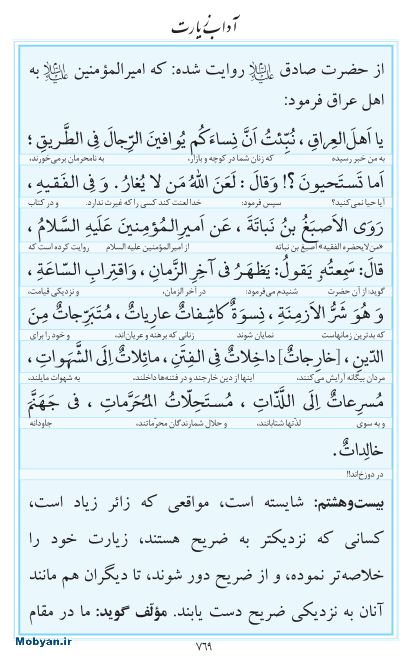 آداب زیارت
از حضرت صادق علیه‌السلام روایت شده: که امیرالمؤمنین علیه‌السلام به
اهل عراق فرمود:
یا اَهلَ العِراقِ ، نُبِّئتُ اَنَّ نِساءَکُم یُوافینَ الرِّجالَ فِی الطَّریقِ ؛
به من خبر رسیده که زنان شما در کوچه و بازار، به نامحرمان برمی‌خورند،
اَما تَستَحیونَ ؟! وَقالَ : لَعَنَ اللّٰهُ مَن لا یُغارُ . وَ فِی الفَقیهِ ،
آیا حیا نمی‌کنید؟ سپس فرمود: خدا لعنت کند کسی را که غیرت ندارد. و در کتاب
رَوَی الاَصبَغُ بنُ نَباتَةَ ، عَن اَمیرِالمُؤمِنینَ عَلَیهِ السَّلامُ ،
«من لایحضره الفقیه» اصبغ بن نباته از امیرالمؤمنین علیه السلام روایت کرده است که
قالَ: سَمِعتُهُ یَقولُ: یَظهَرُ فی آخِرِ الزَّمانِ، وَاقتِرابِ السّاعَةِ ،
گوید: از آن حضرت شنیدم می‌فرمود: در آخر الزمان، و نزدیکی قیامت،
وَ هُوَ شَرُّ الاَزمِنَةِ ، نِسوَةٌ کاشِفاتٌ عارِیاتٌ ، مُتَبَرِّجاتٌ مِنَ
که بدترین زمانهاست نمایان شوند زنانی که برهنه و عریان‌اند، و خود را برای
الدّینِ ، [خارِجاتٌ] داخِلاتٌ فِی الفِتَنِ ، مائِلاتٌ اِلَی الشَّهَواتِ ،
مردان بیگانه آرایش می‌کنند، اینها از دین خارجند و در فتنه‌ها داخلند، به شهوات مایلند،
مُسرِعاتٌ اِلَی اللَّذّاتِ ، مُستَحِلّاتُ المُحَرَّماتِ ، فی جَهَنَّمَ
و به سوی لذّتها شتابانند، و حلال شمارندگان محرّماتند، جاودانه
خالِداتٌ.
در دوزخ‌اند!!
بیست‌وهشتم: شایسته است، مواقعی که زائر زیاد است،
کسانی که نزدیکتر به ضریح هستند، زیارت خود را
خلاصه‌تر نموده، و از ضریح دور شوند، تا دیگران هم مانند
آنان به نزدیکی ضریح دست یابند. مؤلّف گوید: ما در مقام
۷۶۹
Mobyan.ir